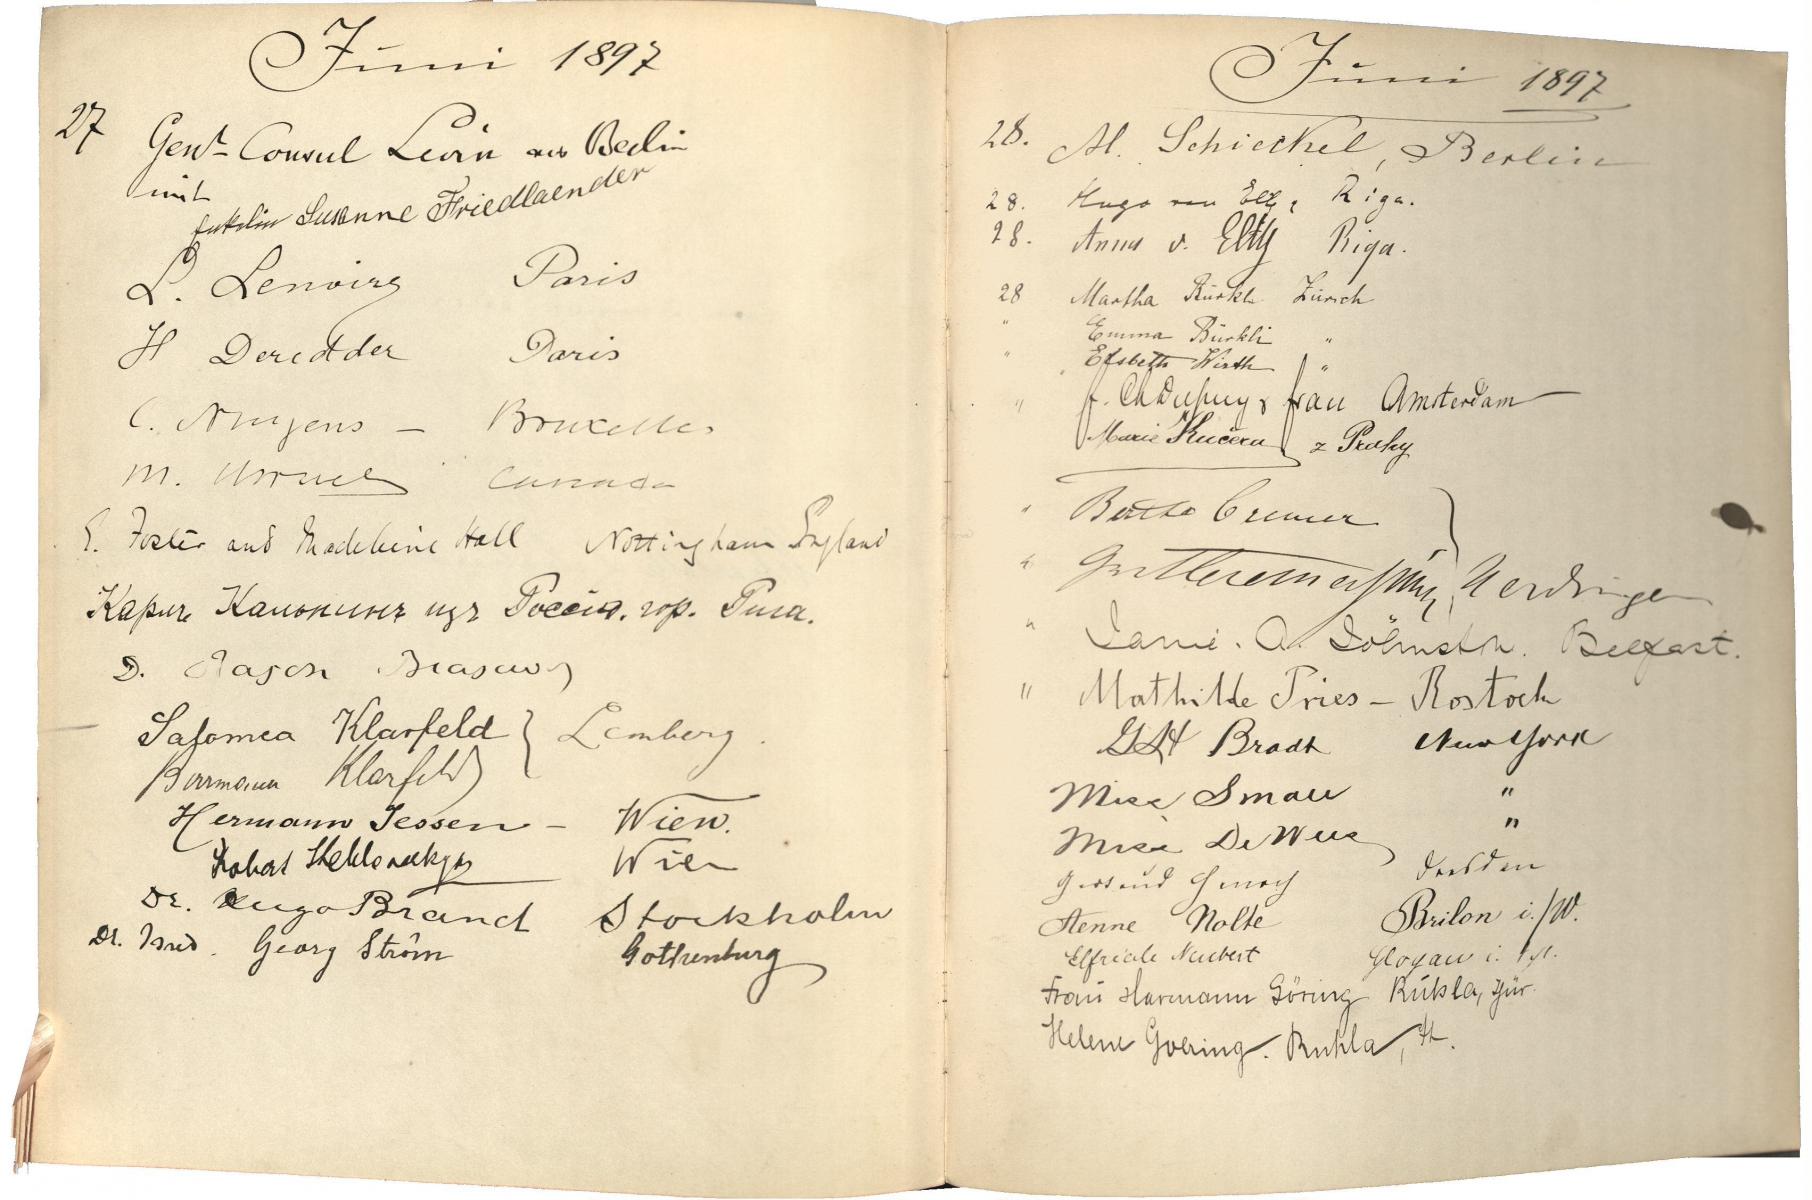 Juni 1897
27 Genl- Consul Levin aus Berlin
mit
Enkelin Susanne Friedlaender
L. Lenoire Paris
H Deredder Paris
C. Nuyens — Bruxelles
M. Canada
E. Foster and Madeleine Hall Nottingham England
изъ Россіи. гор. Рига.
D.
Salomea Klarfeld } Lemberg.
Berrmann Klarfeld
Hermann Jessen — Wien.
Robert Wien
Dr. Hugo Brand Stockholm
Dr. med. Georg Ström Gothenburg
Juni 1897
28. M. Schieckel, Berlin
28. Hugo von Eltz, Riga.
28. Anna v. Eltz Riga.
28 Martha Bürkli Zürich
" Emma Bürkli "
" Elsbeth Wirth "
" f. Ch Dupuy & frau Amsterdam
Marie Kučera z Prahy
" Bertha Cremer }
" Uerdingen
" Janie. A. Johnston. Belfast.
" Mathilde Pries — Rostock
G H Bradt New York
Miss Small "
Miss De Wees "
Gertrud Dresden
Aenne Nolte Brilon i./W.
Elfriede Neubert Glogau i. Schl.
Frau Hermann Göring Ruhla, Thür.
Helene Goering. Ruhla, Th.